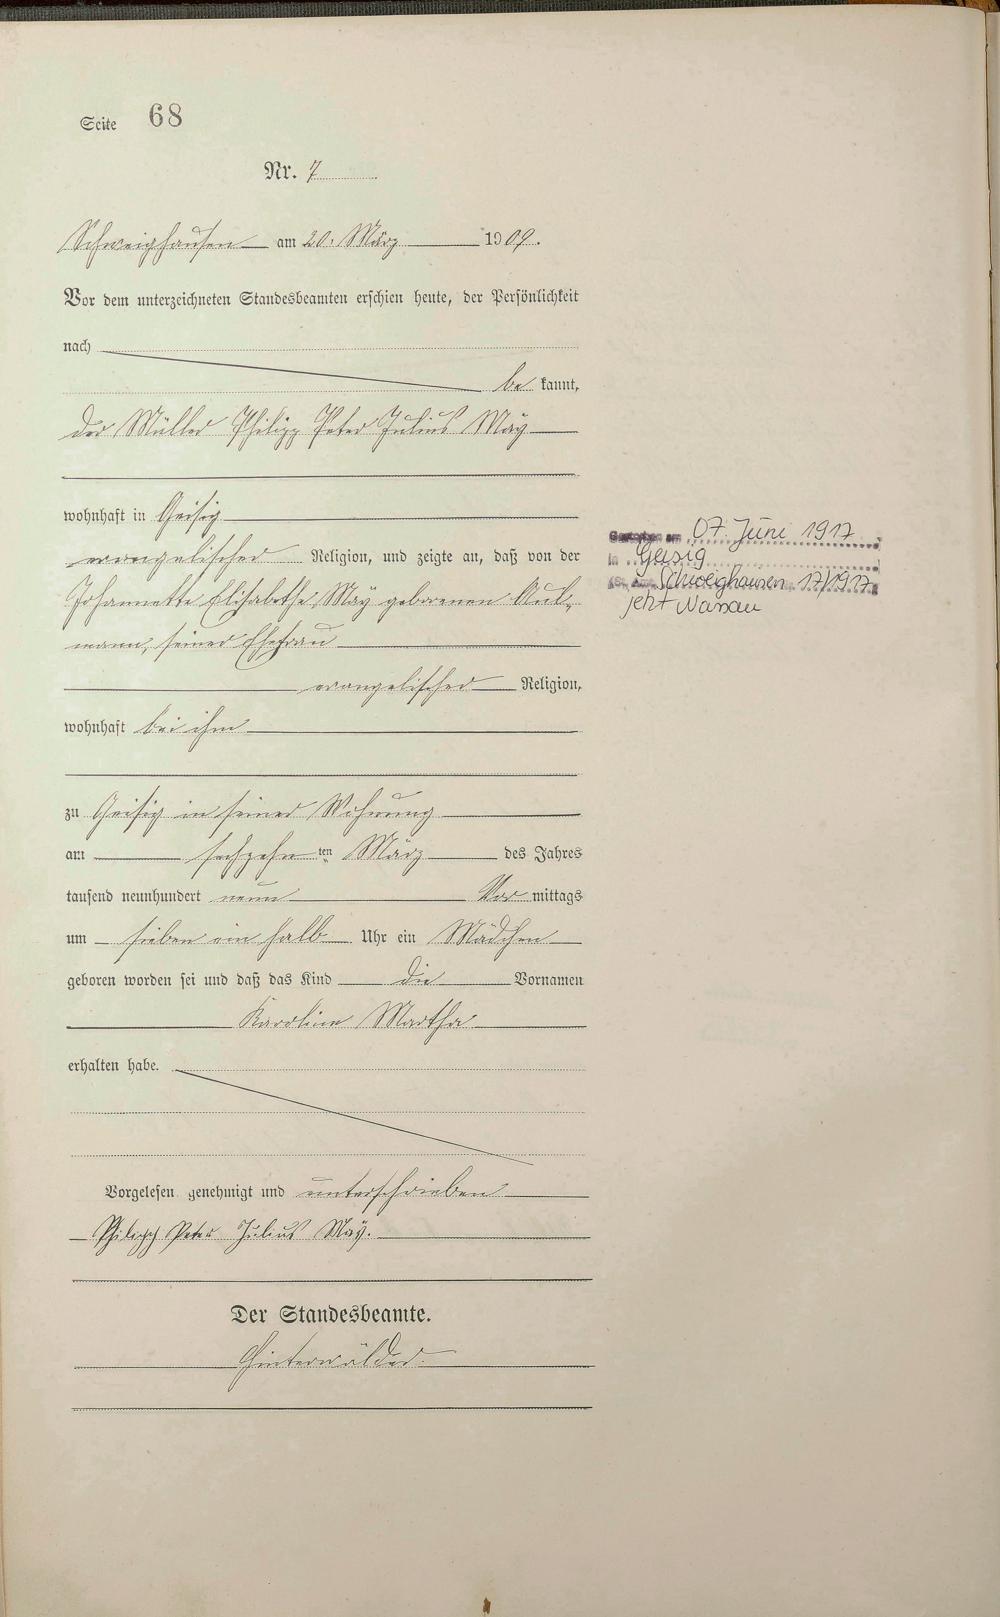 Seite 68
Nr. 7
Schweighausen am 20. März 1909.
Vor dem unterzeichneten Standesbeamten erschien heute, der Persönlichkeit
nach
be kannt,
der Müller Philipp Peter Julius May
wohnhaft in Geisig
evangelischer Religion, und zeigte an, daß von der
Johannette Elisabethe May geborenen Aul-
mann, seiner Ehefrau
evangelischer Religion,
wohnhaft bei ihm
zu Geisig in seiner Wohnung
am sechzehn ten März des Jahres
tausend neunhundert neun Vor mittags
um sieben ein halb Uhr ein Mädchen
geboren worden sei und daß das Kind die Vornamen
Karoline Martha
erhalten habe.
Vorgelesen genehmigt und unterschrieben
Philipp Peter Julius May.
Der Standesbeamte.
Hinterwälder.
Gestorben am 07. Juni 1917
in Geisig
(St. Amt Schweighausen 17/1917
jetzt Nassau